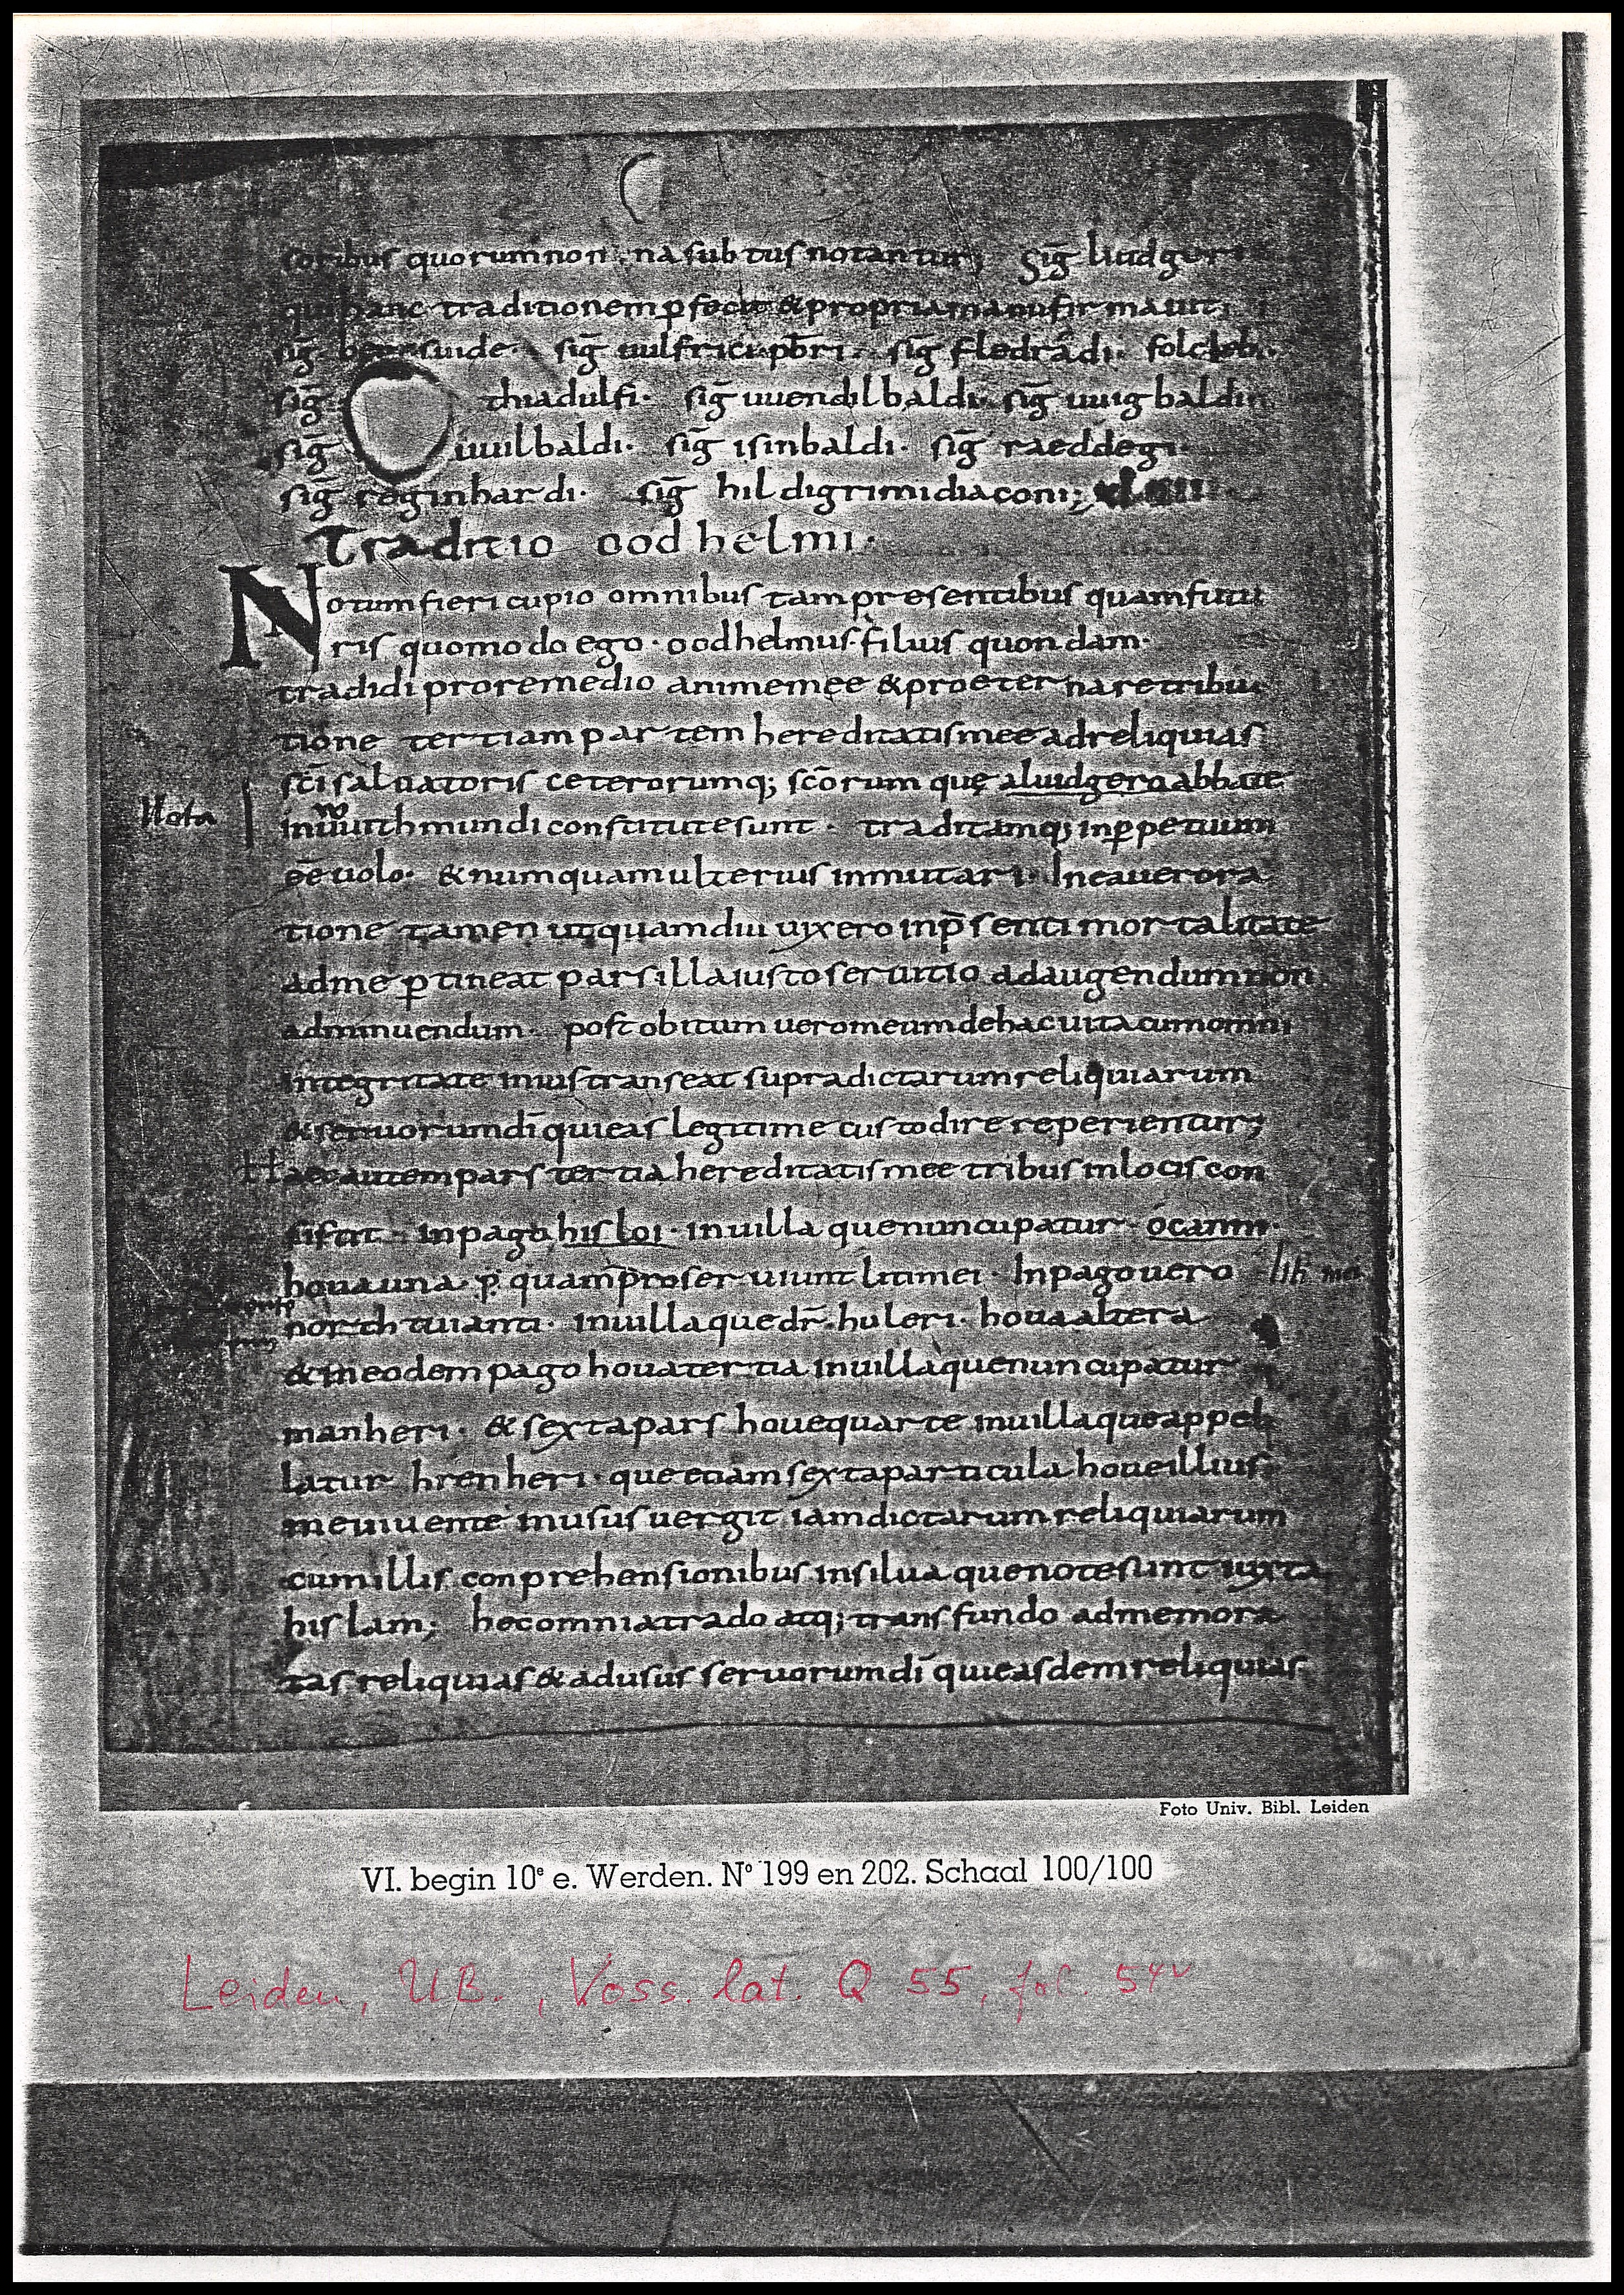 soribus quorum non; na subtus notantur; Sig̅ liudgeri
qui hanc traditionem ꝑfecit & propria manu firmauit;
sig̅ suide· sig̅ uulfrici pbr̅i· sig̅ fledrad̅i· folcleb·
sig̅ thiadulfi· sig̅ uuendilbaldi· sig̅ uuigbaldi
sig̅ uuilbaldi· sig̅ isinbaldi· sig̅ raeddegi·
sig̅ reginhardi· sig̅ hildigrimi diaconi;
Traditio oodhelmi·
Notum fieri cupio omnibus tam presentibus quam futu
ris quomodo ego· oodhelmus· filius quondam·
tradidi pro remedio anime meę & pro eterna retribu
tione tertiam partem hereditatis mee ad reliquias
sc̅i saluatoris ceterorumq; sc̅orum quę a luidgero abbate
Nota
in uuithmundi constitute sunt· traditamq; in ꝑpetuum
ee̅ uolo· & numquam ulterius inmutari· In ea uero ra
tione tamen ut quamdiu uixero in p̅senti mortalitate
ad me ꝑtineat pars illa iusto seruitio ad augendum non
ad minuendum· post obitum uero meum de hac uita cum omni
integritate in ius transeat supradictarum reliquiarum
& seruorum di̅ qui eas legitime custodire reperientur;
Haec autem pars tertia hereditatis mee tribus in locis con
sistit· in pago hisloi· in uilla que nuncupatur· ocanni·
houa una· ꝑ quam proseruiunt liti mei· In pago uero
northtuianti· in uilla que dr̅· huleri· houa altera
& in eodem pago houa tertia in uilla que nuncupatur
manheri· & sexta pars houe quarte in uilla que appel
latur hrenheri· que etiam sexta particula houe illius
me uiuente in usus uergit iamdictarum reliquiarum
cum illis conprehensionibus in silua que note sunt iuxta
hislam; hec omnia trado atq; transfundo ad memora
tas reliquias & ad usus seruorum di̅ qui easdem reliquias
Foto Univ. Bibl. Leiden
VI. begin 10e e. Werden. No 199 en 202. Schaal 100/100
Leiden, UB., Voss. lat. Q 55, fol. 54v